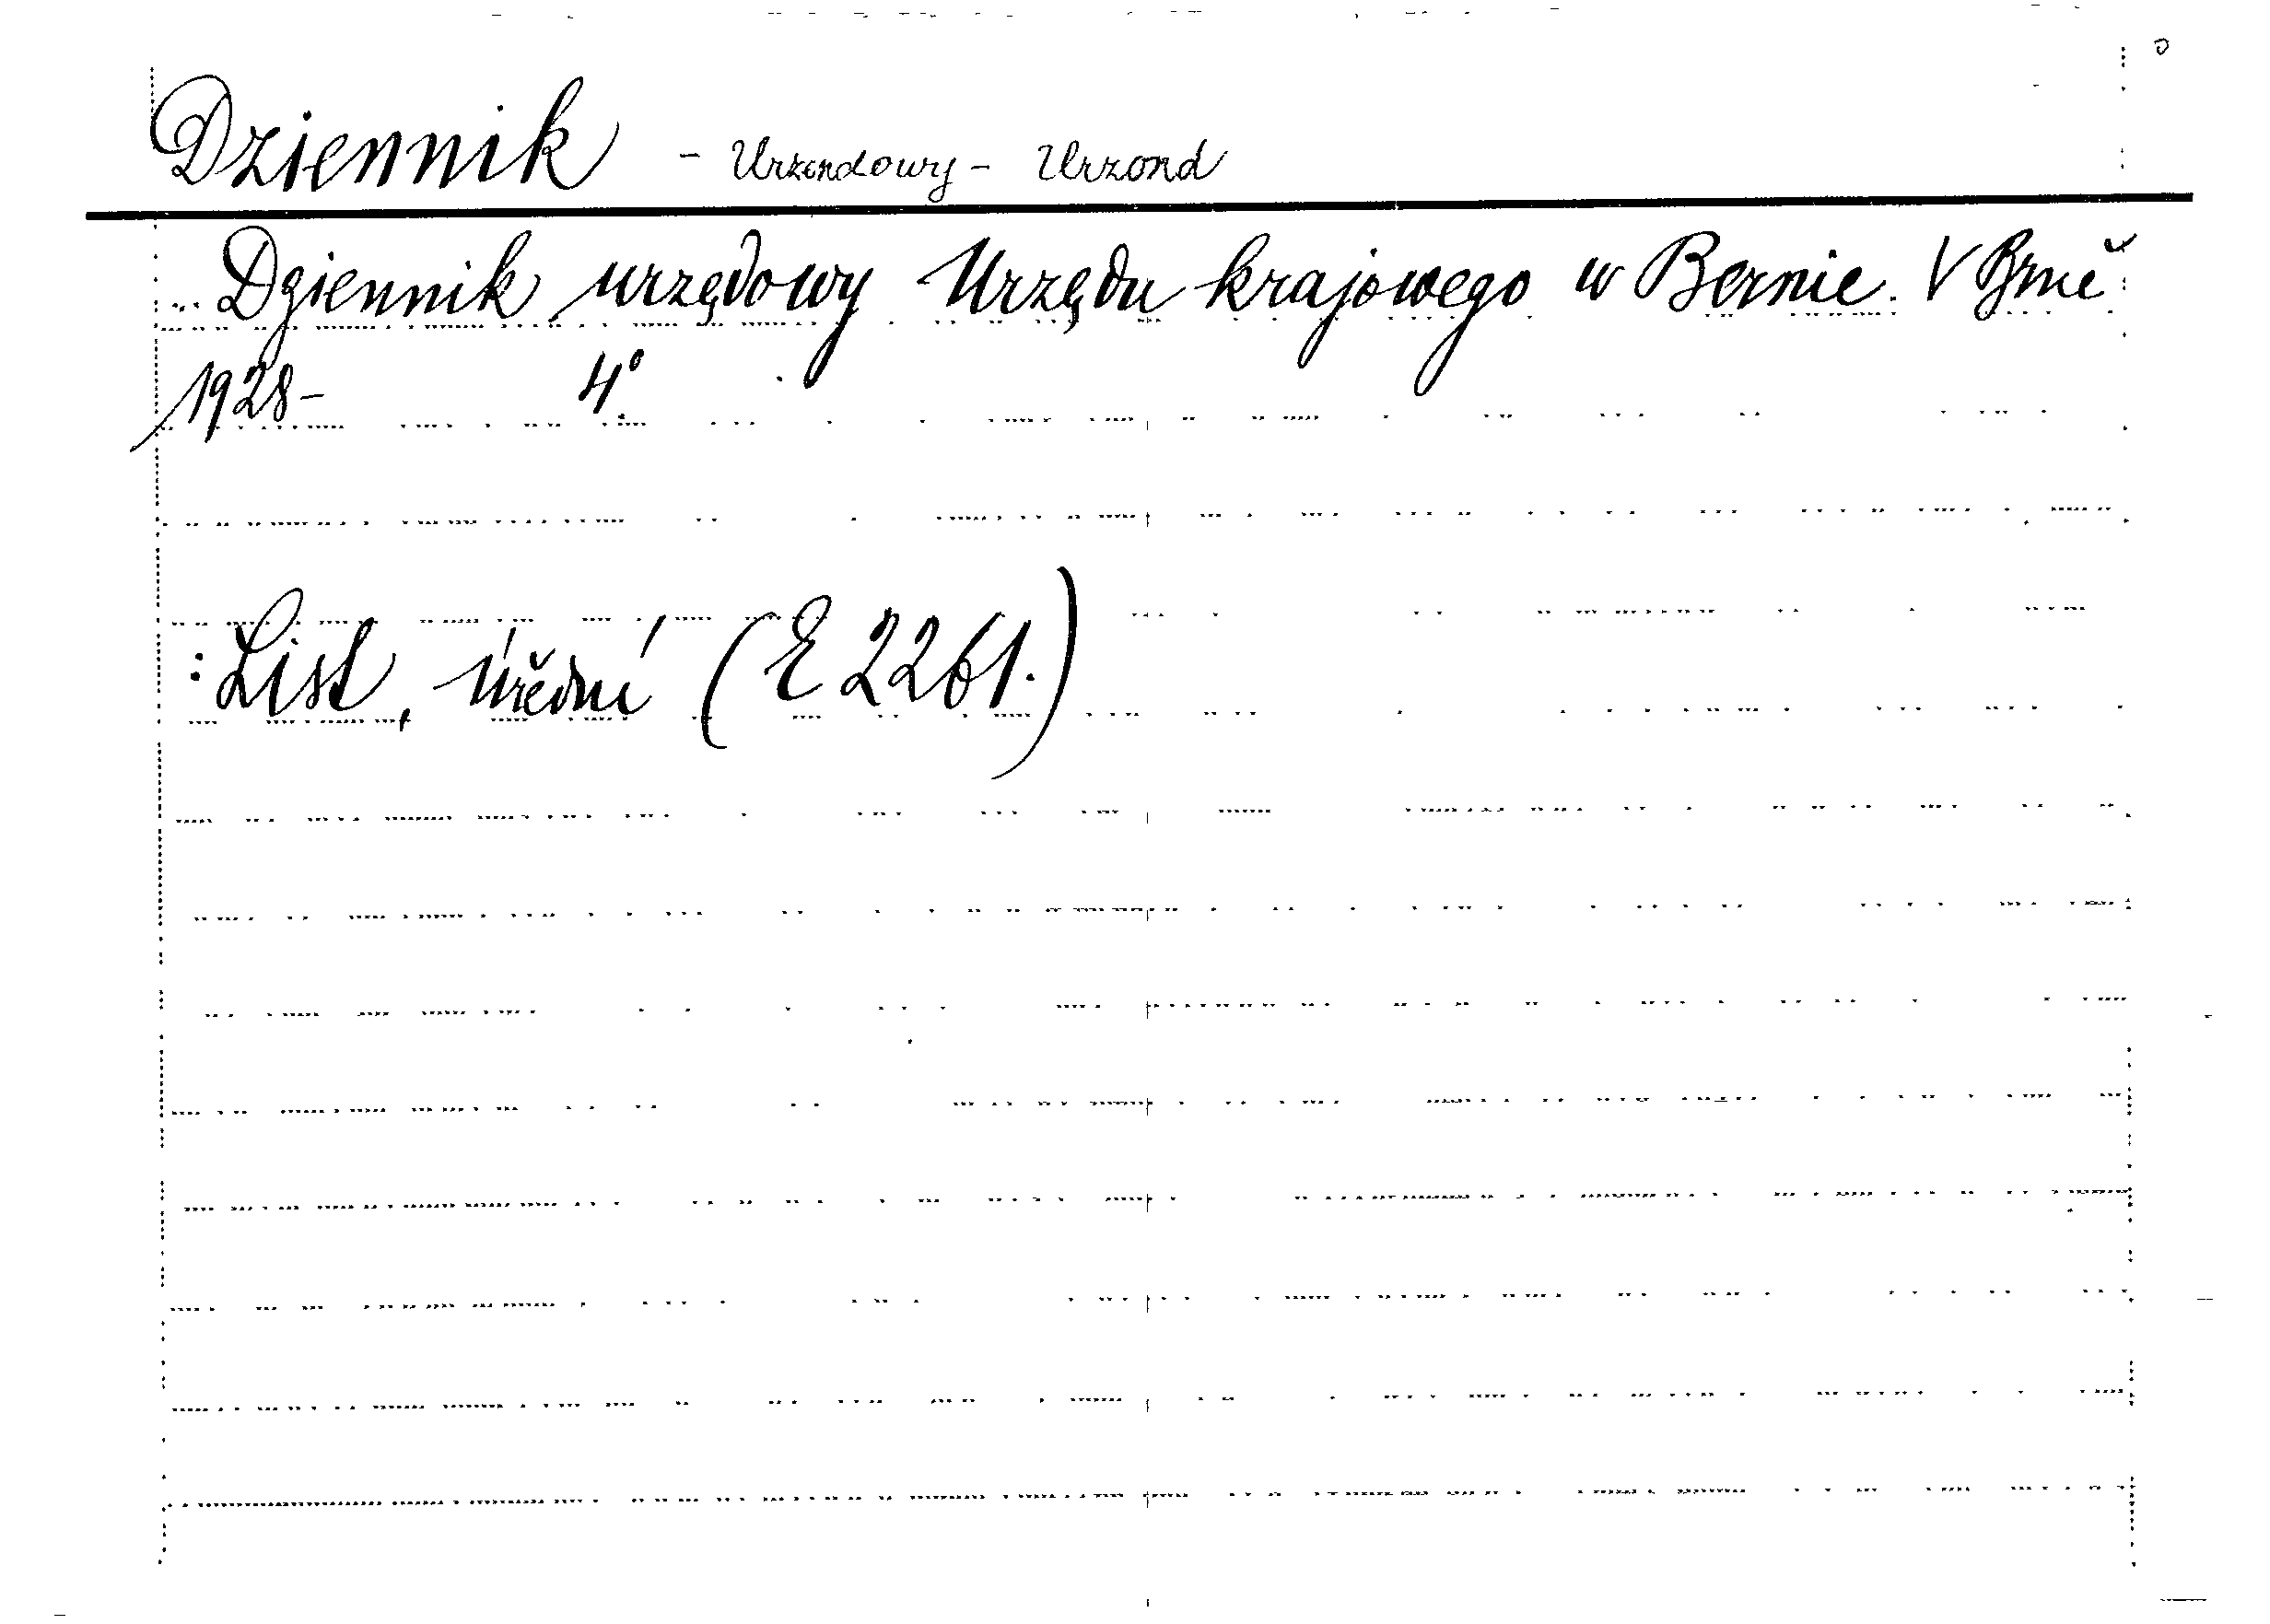 Dziennik - Urzendowy - Urzond
Dziennik urzędowy Urzędu krajowego w Bernie. V Brně
1928- 4°.
: List, úřední (E 2261.)